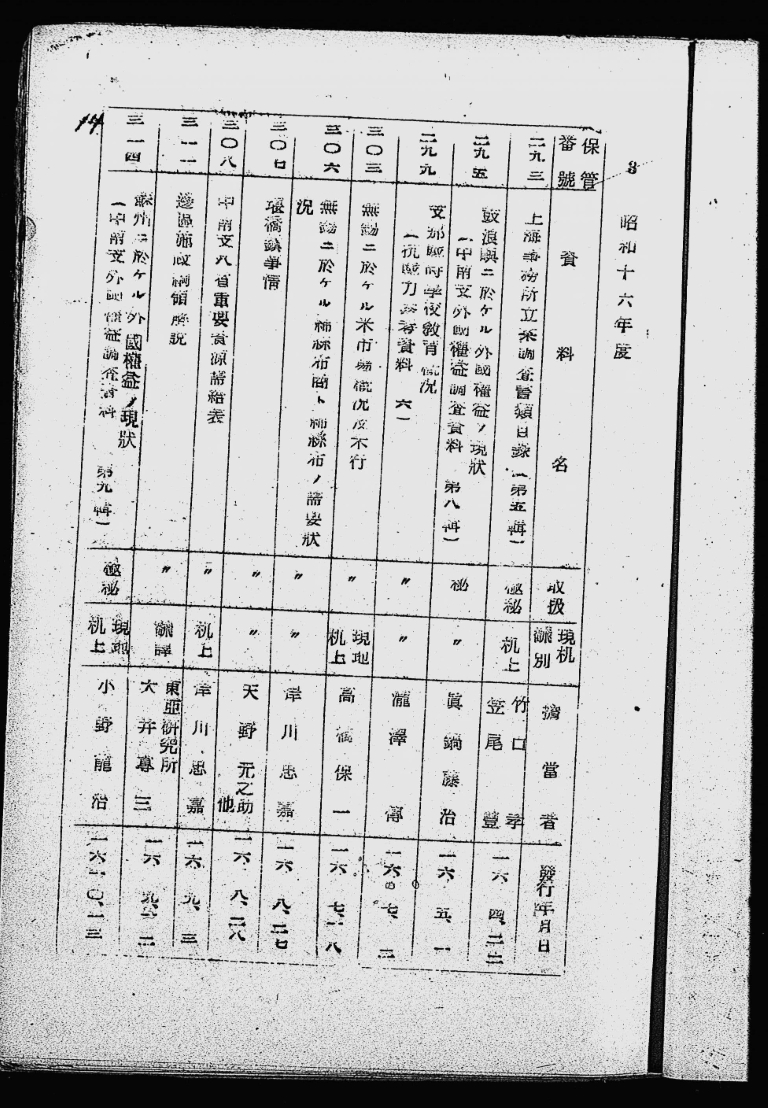 14
3
昭和十六年度
保管番號
資料名
取扱
現机飜別
擔當者
發行年月日
二九三
上海事務所立案調査書類目錄(第五輯)
極秘
机上
竹口孝
笠尾豊
一六、四、二二
二九五
鼓浪嶼ニ於ケル外國權益ノ現狀
(中南支外國權益調査資料 第八輯)
秘
〃
眞鍋藤治
一六、五、一
二九九
支那臨時學校敎育槪況
(抗戰力參考資料 六)
〃
〃
瀧澤
一六、七、
三〇三
無錫ニ於ケル米市場槪況及米行
〃
現地机上
高橋保一
一六、七、一八
三〇六
無錫ニ於ケル綿絲布商ト綿絲布ノ需要狀
況
〃
〃
津川忠嘉
一六、八、二七
三〇七
橋鎭事情
〃
〃
天野元之助
他
一六、八、二八
三〇八
中南支八省重要資源諸表
〃
机上
津川忠嘉
一六、九、三
三一一
邊區施政綱領解說
〃
飜譯
東亞研究所
大井專三
一六、九、
三一四
蘇州ニ於ケル外國權益ノ現狀
(中南支外國權益調査資料 第九輯)
極秘
現地机上
小野龍治
一六、一〇、一三